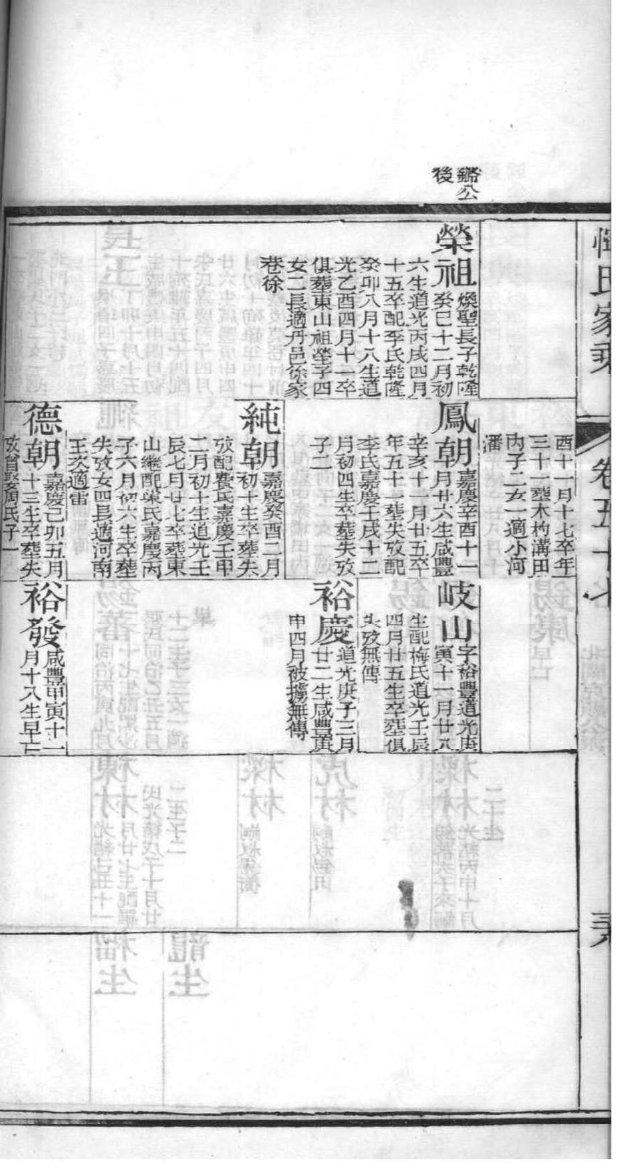 惲氏家乘
卷五十七
鏘公
後
榮祖
煥聖長子乾隆
癸巳十二月初
六生道光丙戌四月
十五卒配李氏乾隆
癸卯八月十八生道
光乙酉四月十一卒
俱葬東山祖塋子四
女二長適丹邑徐家
巷徐
酉十一月十七卒年
三十一葬木杓溝田
內子二女一適小河
潘
鳳朝
嘉慶辛酉十一
月廿六生咸豐
辛亥十月廿五卒
年五十一葬失攷配
李氏嘉慶壬戌十二
月初四生卒葬失攷
子二
純朝
嘉慶癸酉二月
初十生卒葬失
攷配費氏嘉慶壬申
二月初十生道光壬
辰七月廿七卒葬東
山繼配葉氏嘉慶丙
子六月初六生卒葬
失攷女四長適河南
王次適雷
德朝
嘉慶己卯五月
十三生卒葬失
攷曾娶周氏子一
岐山
字裕豐道光庚
寅十一月廿八
生配梅氏道光壬辰
四月廿五生卒葬俱
失攷無傳
裕慶
道光庚子三月
廿二生咸豐庚
申四月被擄無傳
裕發
咸豐甲寅十一
月十八生早亡